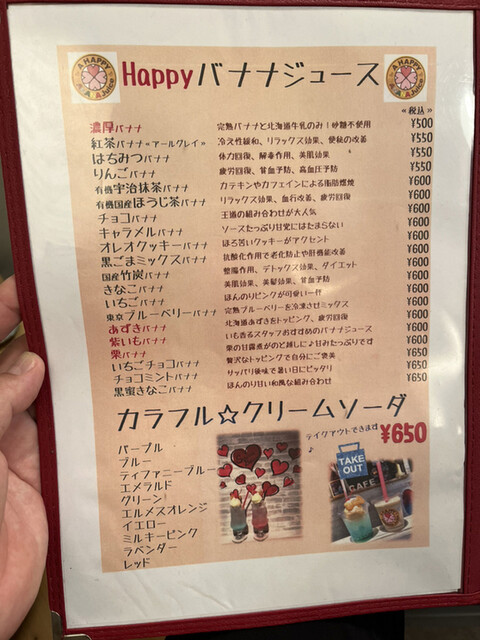 A HAPPY
Happyバナナジュース
A HAPPY
«税込»
濃厚バナナ 完熟バナナと北海道牛乳のみ!砂糖不使用 ¥500
紅茶バナナ«アールグレイ» 冷え性緩和、リラックス効果、便秘の改善 ¥550
はちみつバナナ 体力回復、解毒作用、美肌効果 ¥550
りんごバナナ 疲労回復、貧血予防、高血圧予防 ¥550
有機宇治抹茶バナナ カテキンやカフェインによる脂肪燃焼 ¥600
有機国産ほうじ茶バナナ リラックス効果、血行改善、疲労回復 ¥600
チョコバナナ 王道の組み合わせが大人気 ¥600
キャラメルバナナ ソースたっぷり甘党にはたまらない ¥600
オレオクッキーバナナ ほろ苦いクッキーがアクセント ¥600
黒ごまミックスバナナ 抗酸化作用で老化防止や肝機能改善 ¥600
国産竹炭バナナ 整腸作用、デトックス効果、ダイエット ¥600
きなこバナナ 美肌効果、美髪効果、貧血予防 ¥600
いちごバナナ ほんのりピンクが可愛い一杯 ¥600
東京ブルーベリーバナナ 完熟ブルーベリーを冷凍させミックス ¥600
あずきバナナ 北海道あずきをトッピング、疲労回復 ¥600
紫いもバナナ いも香るスタッフおすすめのバナナジュース ¥600
栗バナナ 栗の甘露煮がのど越し♪甘みたっぷりです ¥600
いちごチョコバナナ 贅沢なトッピングで自分にご褒美 ¥650
チョコミントバナナ サッパリ後味で暑い日にピッタリ ¥650
黒蜜きなこバナナ ほんのり甘い和風な組み合わせ ¥650
カラフル☆クリームソーダ
テイクアウトできます♪ ¥650
パープル
ブルー
ティファニーブルー
エメラルド
グリーン
エルメスオレンジ
イエロー
ミルキーピンク
ラベンダー
レッド
TAKE
OUT
CAFE